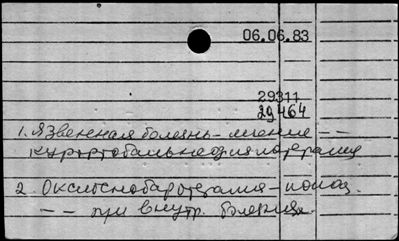 06.06.83
29311
29464
1. Язвенная болезнь - лечение --
курортобальнеофизиотерапия
2. Оксигенобаротерапия - показ.
-- при внутр. болезнях.